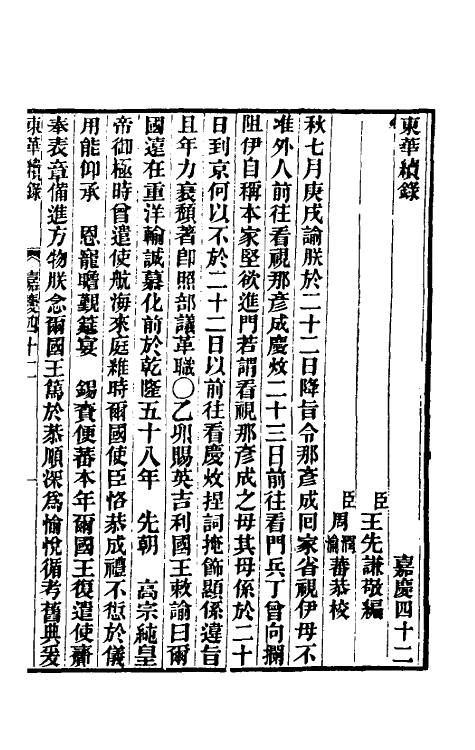 東華續錄　嘉慶四十二
臣王先謙敬編
臣周潤蕃周瀹蕃恭校
秋七月庚戌諭朕於二十二日降旨令那彥成回家省視伊母不
准外人前往看視那彥成慶炆二十三日前往看門兵丁曾向攔
阻伊自稱本家堅欲進門若謂看視那彥成之母其母係於二十
日到京何以不於二十二日以前往看慶炆捏詞掩飾顯係違旨
且年力衰頹著卽照部議革職○乙卯賜英吉利國王敕諭曰爾
國遠在重洋輸誠慕化前於乾隆五十八年　先朝　高宗純皇
帝御極時曾遣使航海來庭維時爾國使臣恪恭成禮不愆於儀
用能仰承　恩寵瞻覲筵宴　錫賚便蕃本年爾國王復遣使齎
奉表章備進方物朕念爾國王篤於恭順深爲愉悅循考舊典爰
東華續錄　嘉慶四十二　一